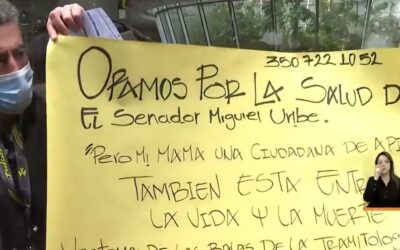 350 722 10 52
OPAMOS POR LA SALUD D
EL SENADOR MIGUEL URIBE.
"PERO MI MAMA UNA CIUDADANA DE API
TAMBIEN ESTA ENTR
LA VIDA Y LA MUERTE
DE LAS BALAS DE LA TRAMITOLO